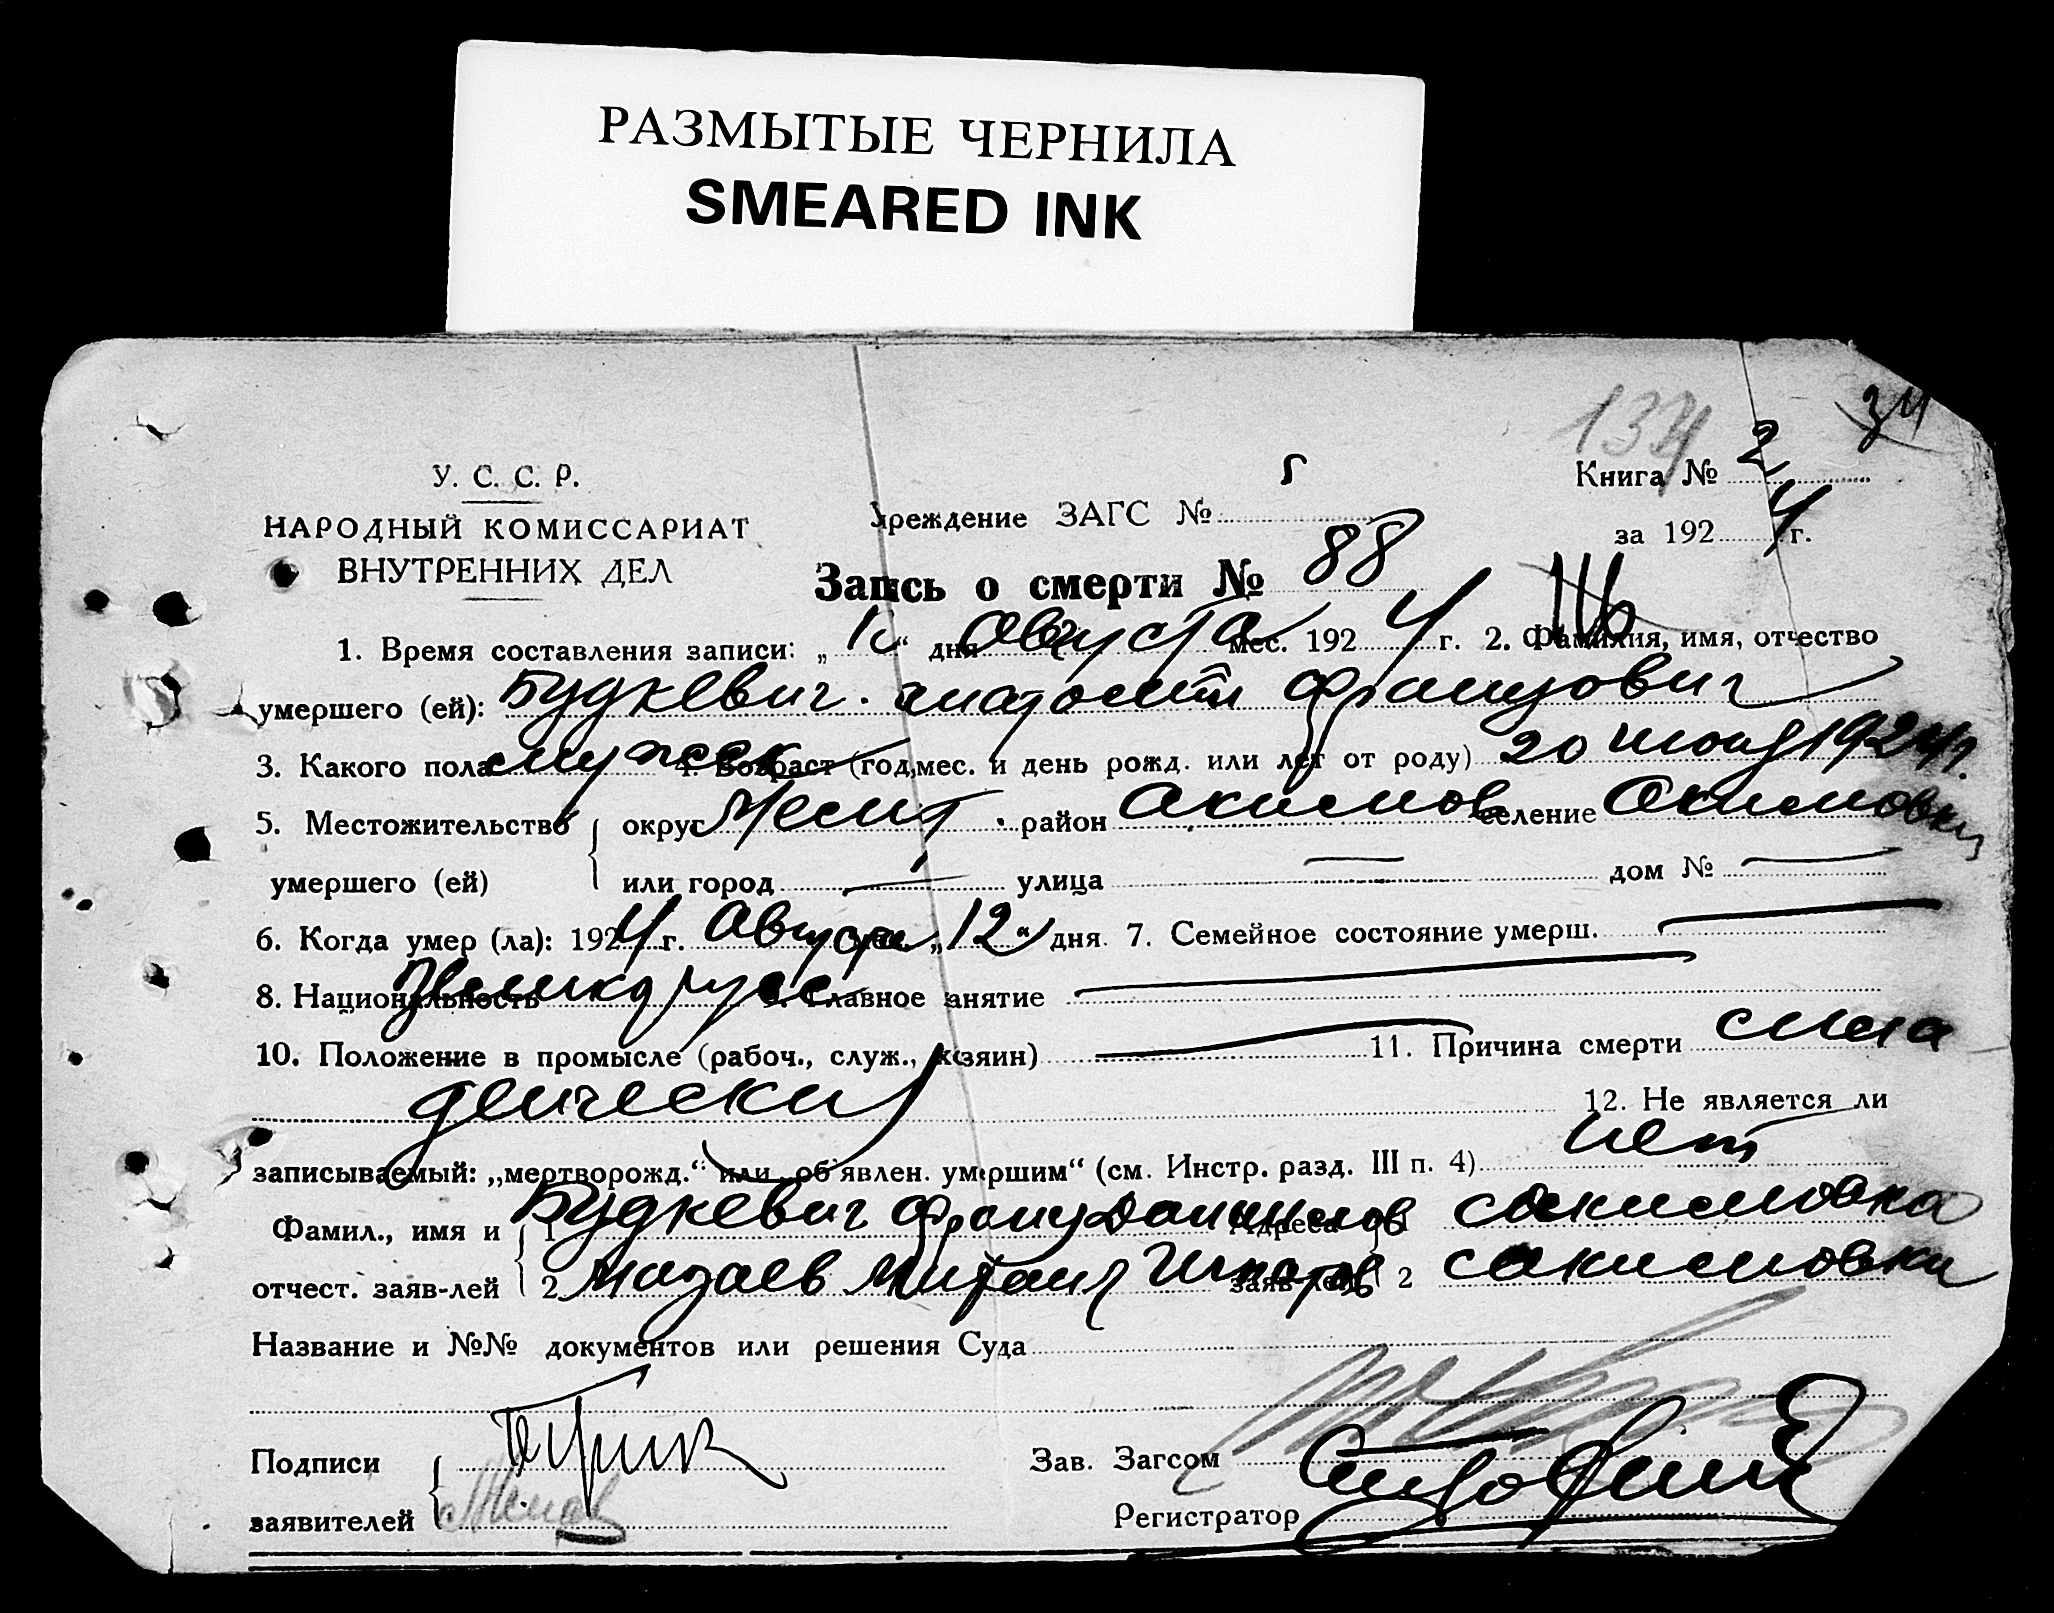 РАЗМЫТЫЕ ЧЕРНИЛА
SMEARED INK
134 34
У. С. С. Р.
НАРОДНЫЙ КОМИССАРИАТ
ВНУТРЕННИХ ДЕЛ
Учреждение ЗАГС № 5
Книга № 2
за 1924 г.
Запись о смерти № 88
1. Время составления записи: „ “ дня Августа мес. 1924 г. 2. Фамилия, имя, отчество
умершего (ей): Будкевич Францович
3. Какого пола мужск 4. Возраст (год, мес. и день рожд. или лет от роду) 20 1924 г.
5. Местожительство округ Мелит. район Акимов селение Акимовка
умершего (ей) или город — улица — дом № —
6. Когда умер (ла): 1924 г. Августа мес. „12“ дня. 7. Семейное состояние умерш. —
8. Национальность Великорус 9. Главное занятие —
10. Положение в промысле (рабоч., служ., хозяин) — 11. Причина смерти
12. Не является ли
записываемый: „мертворожд.“ или „об'явлен. умершим“ (см. Инстр. разд. III п. 4) нет
Фамил., имя и 1 Будкевич Франц Адреса 1 с Акимовка
отчест. заяв-лей 2 Мазаев Михаил заяв-лей 2 с Акимовка
Название и №№ документов или решения Суда
Подписи
заявителей
Зав. Загсом
Регистратор